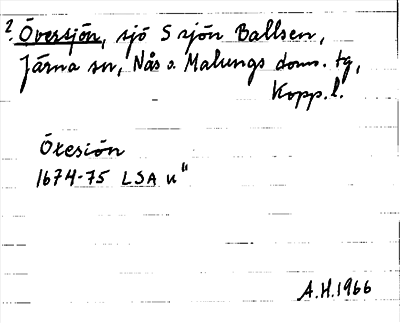 2. Översjön, sjö S sjön Ballsen,
Järna sn, Nås o. Malungs doms. tg,
Kopp. l.
Öresiön
1674-75 LSA U"
A.H. 1966